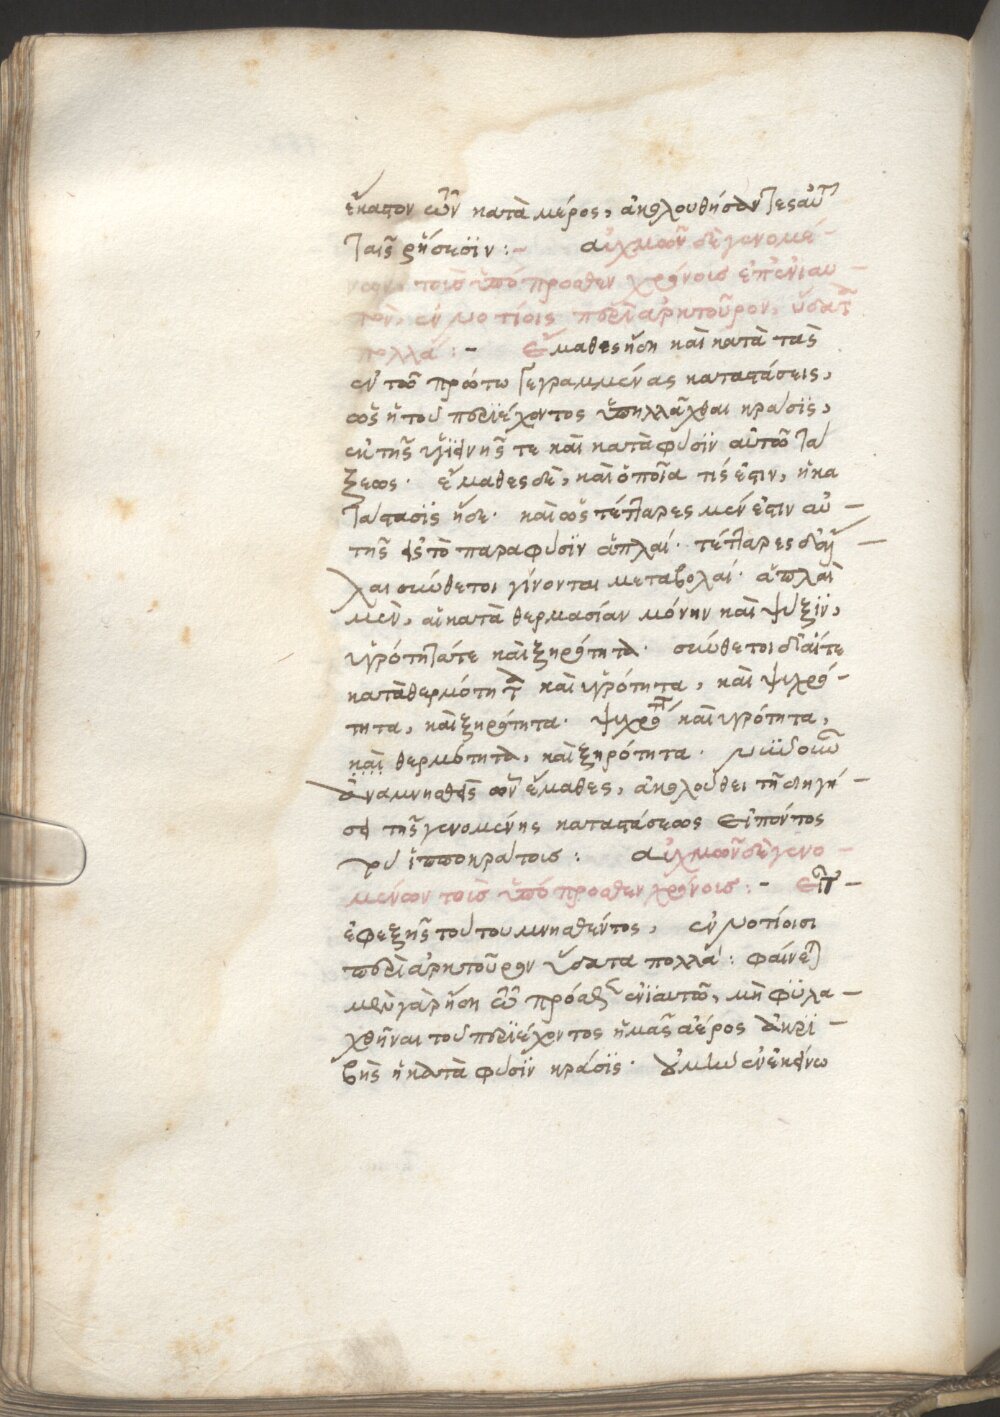 ἕκαστον ὧν κατὰ μέρος, ἀκολουθήσαντες αὐ
ταῖς ῥήσεσιν :- αὐχμῶν δὲ γενομέ-
νων, τοῖς ὑπόπροσθεν χρόνοις ἐπ' ἐνιαυ-
τὸν, ἐν νοτίοις περὶ ἀρκτοῦρον, ὕδατα
πολλά :- ἔμαθες ἤδη καὶ κατὰ τὰς
ἐν τῶ πρώτω γεγραμμένας καταστάσεις,
ὡς ἡ τοῦ περιέχοντος ὑπηλλάχθαι κρᾶσις,
ἐκ τῆς ὑγιεινῆς τε καὶ κατὰ φύσιν αὐτῶ τά
ξεως. ἔμαθες δὲ, καὶ ὁποῖα τίς ἐστιν, ἡ κα
τάστασις ἥδε. καὶ ὡς τέτταρες μέν εἰσιν αὐ-
τῆς εἰς τὸ παρὰ φύσιν ἁπλαί. τέτταρες δὲ
καὶ σύνθετοι γίνονται μεταβολαί. ἁπλαῖ
μὲν, αἱ κατὰ θερμασίαν μόνην καὶ ψῦξιν,
ὑγρότητά τε καὶ ξηρότητα. σύνθετοι δὲ αἵ τε
κατὰ θερμότητα καὶ ὑγρότητα, καὶ ψυχρό-
τητα, καὶ ξηρότητα. ψυχρότητα καὶ ὑγρότητα,
καὶ θερμότητα, καὶ ξηρότητα. νυνὶ δ' οὖν
ἀναμνησθεὶς ὧν ἔμαθες, ἀκολούθει τῇ διηγή-
σει τῆς γενομένης καταστάσεως εἰπόντος
τοῦ ἱπποκράτοις : αὐχμῶν δὲ γενο-
μένων τοῖς ὑπόπροσθεν χρόνοις :- εἶτ-
ἐφεξῆς τούτου μνησθέντος, ἐν νοτίοισι
περὶ ἀρκτοῦρον ὕδατα πολλά : φαίνεται
μὲν γὰρ ἤδη τῶ πρόσθεν ἐνιαυτῶ, μὴ φυλα-
χθῆναι τοῦ περιέχοντος ἡμᾶς ἀέρος ἀκρι-
βὴς ἡ κατὰ φύσιν κράσις. οὐ μὴν ἐν ἐκείνω